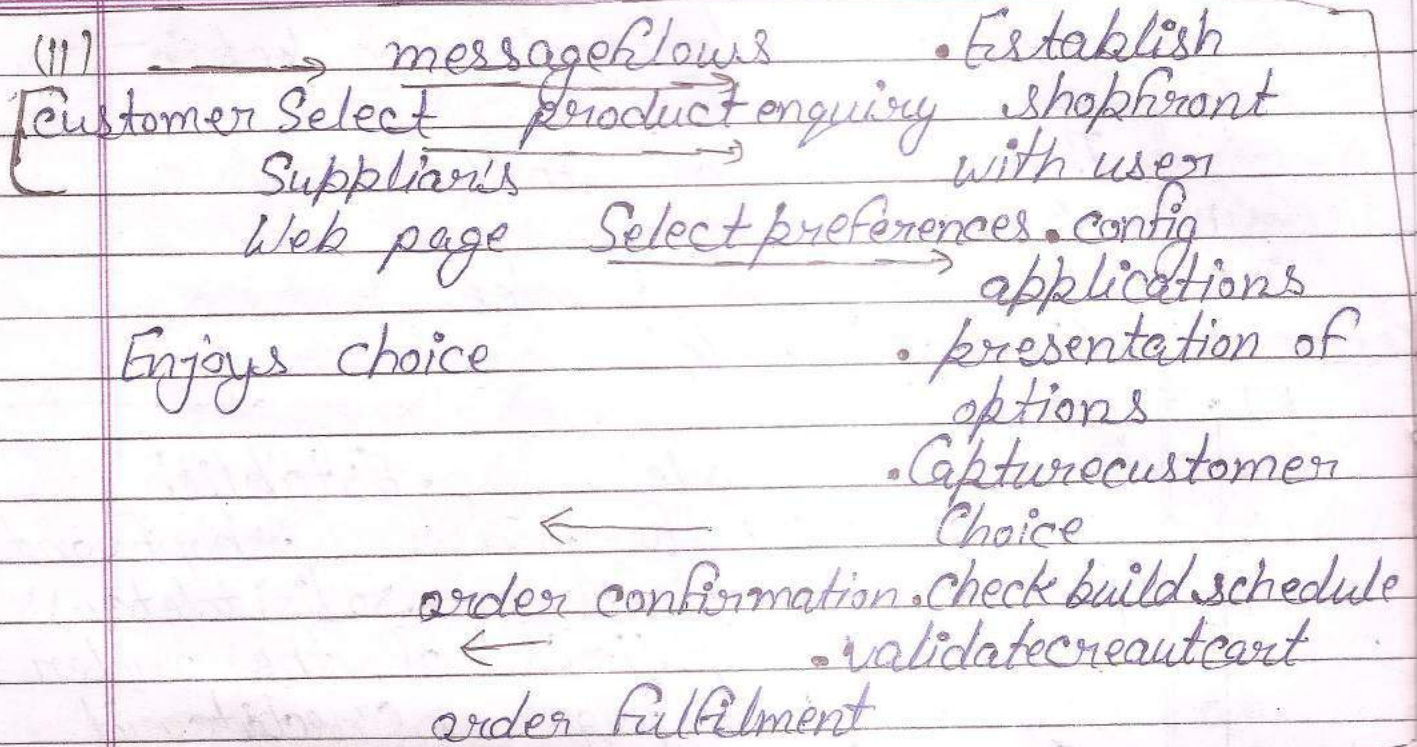 (11) → messageflows • Establish
Customer Select product enquiry shopfront
Suppliar's with user
Web page Select preferences • config
applications
Enjoys choice • presentation of
options
• Capturecustomer
← Choice
order confirmation • Check build schedule
← • validatecreautcart
order fulfilment